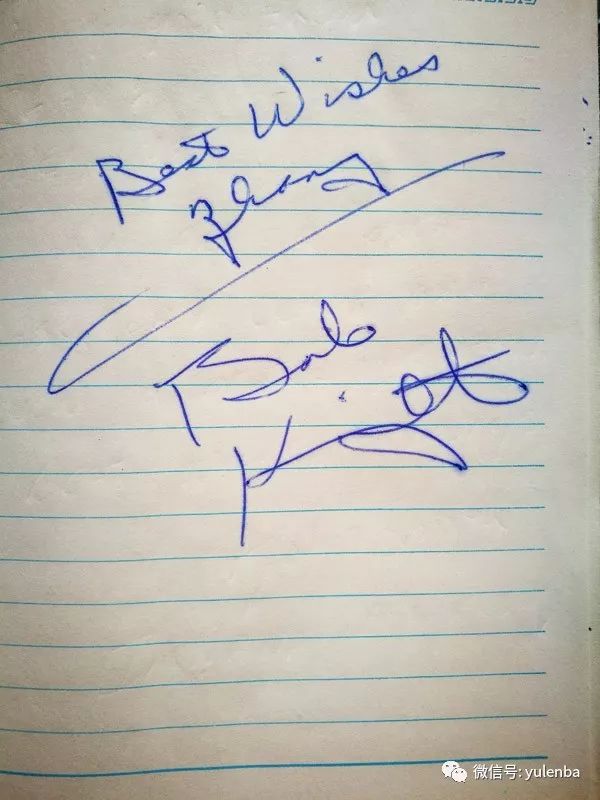 Best Wishes
Zhang
Bob
Knight
微信号: yulenba